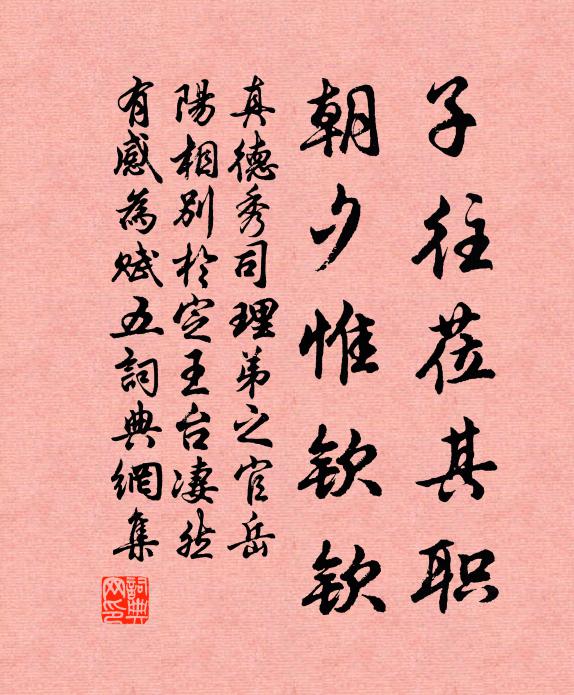 子往莅其职
朝夕惟钦钦
真德秀司理弟之官岳
陽相别於定王台凄然
有感為赋五詞典網集
詞典網印